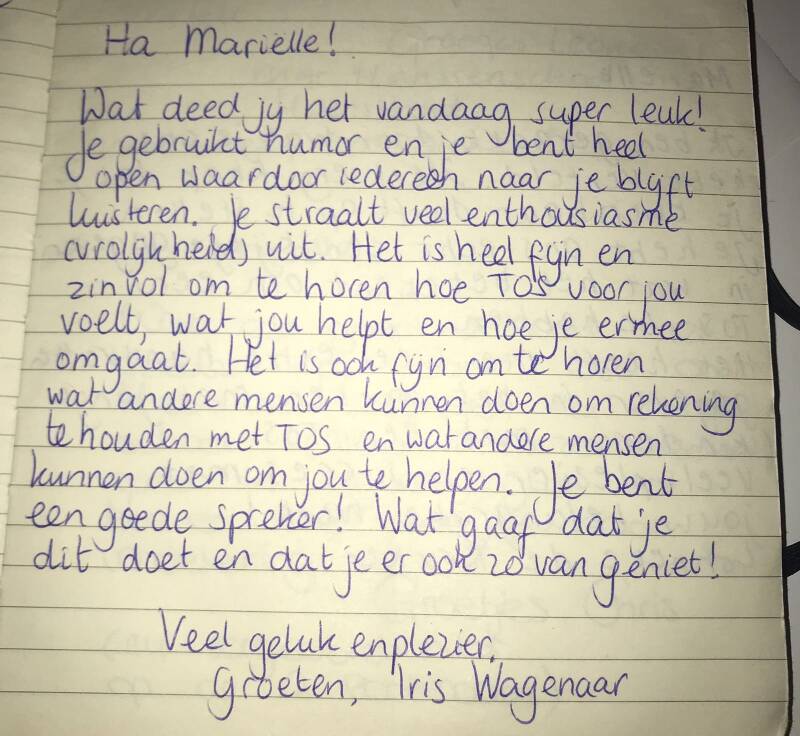 Ha Mariëlle!
Wat deed jij het vandaag super leuk!
Je gebruikt humor en je bent heel
open waardoor iedereen naar je blijft
luisteren. Je straalt veel enthousiasme
(vrolijkheid) uit. Het is heel fijn en
zinvol om te horen hoe TOS voor jou
voelt, wat jou helpt en hoe je ermee
omgaat. Het is ook fijn om te horen
wat andere mensen kunnen doen om rekening
te houden met TOS en wat andere mensen
kunnen doen om jou te helpen. Je bent
een goede spreker! Wat gaaf dat je
dit doet en dat je er ook zo van geniet!
Veel geluk en plezier,
Groeten, Iris Wagenaar